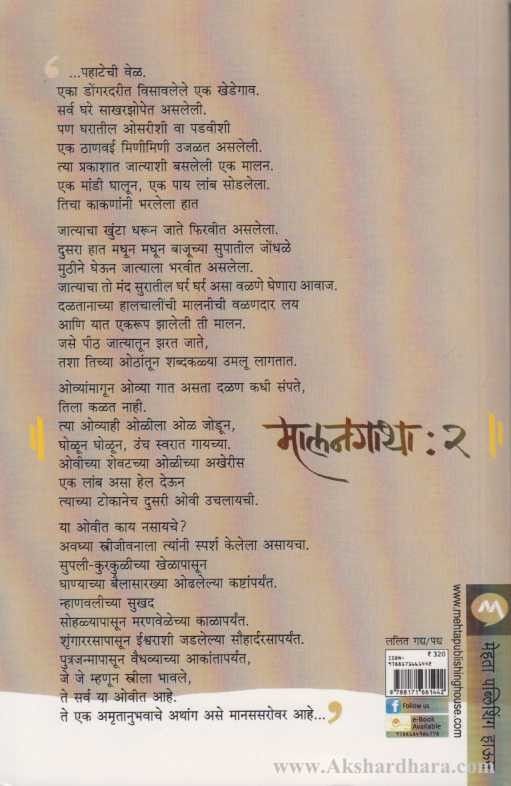 ...पहाटेची वेळ.
एका डोंगरदरीत विसावलेले एक खेडेगाव.
सर्व घरे साखरझोपेत असलेली.
पण घरातील ओसरीशी वा पडवीशी
एक ठाणवई मिणीमिणी उजळत असलेली.
त्या प्रकाशात जात्याशी बसलेली एक मालन.
एक मांडी घालून, एक पाय लांब सोडलेला.
तिचा काकणांनी भरलेला हात
जात्याचा खुंटा धरून जाते फिरवीत असलेला.
दुसरा हात मधून मधून बाजूच्या सुपातील जोंधळे
मुठीने घेऊन जात्याला भरवीत असलेला.
जात्याचा तो मंद सुरातील घर्र घर्र असा वळणे घेणारा आवाज.
दळतानाच्या हालचालींची मालनीची वळणदार लय
आणि यात एकरूप झालेली ती मालन.
जसे पीठ जात्यातून झरत जाते,
तशा तिच्या ओठांतून शब्दकळ्या उमलू लागतात.
ओव्यांमागून ओव्या गात असता दळण कधी संपते,
तिला कळत नाही.
त्या ओव्याही ओळीला ओळ जोडून,
घोळून घोळून, उंच स्वरात गायच्या.
ओवीच्या शेवटच्या ओळीच्या अखेरीस
एक लांब असा हेल देऊन
त्याच्या टोकानेच दुसरी ओवी उचलायची.
या ओवीत काय नसायचे?
अवघ्या स्त्रीजीवनाला त्यांनी स्पर्श केलेला असायचा.
सुपली-कुरकुळीच्या खेळापासून
घाण्याच्या बैलासारख्या ओढलेल्या कष्टांपर्यंत.
न्हाणवलीच्या सुखद
सोहळ्यापासून मरणवेळेच्या काळापर्यंत.
शृंगाररसापासून ईश्वराशी जडलेल्या सौहार्दरसापर्यंत.
पुत्रजन्मापासून वैधव्याच्या आकांतापर्यंत,
जे जे म्हणून स्त्रीला भावले,
ते सर्व या ओवीत आहे.
ते एक अमृतानुभवाचे अथांग असे मानससरोवर आहे...
मालनगाथा : २
ललित गद्य/पद्य
₹ 320
ISBN-
9788171661442
9 788171 661442
Follow us
e-Book
Available
www.mehtapublishinghouse.com
मेहता पब्लिशिंग हाऊस
www.Akshardhara.com